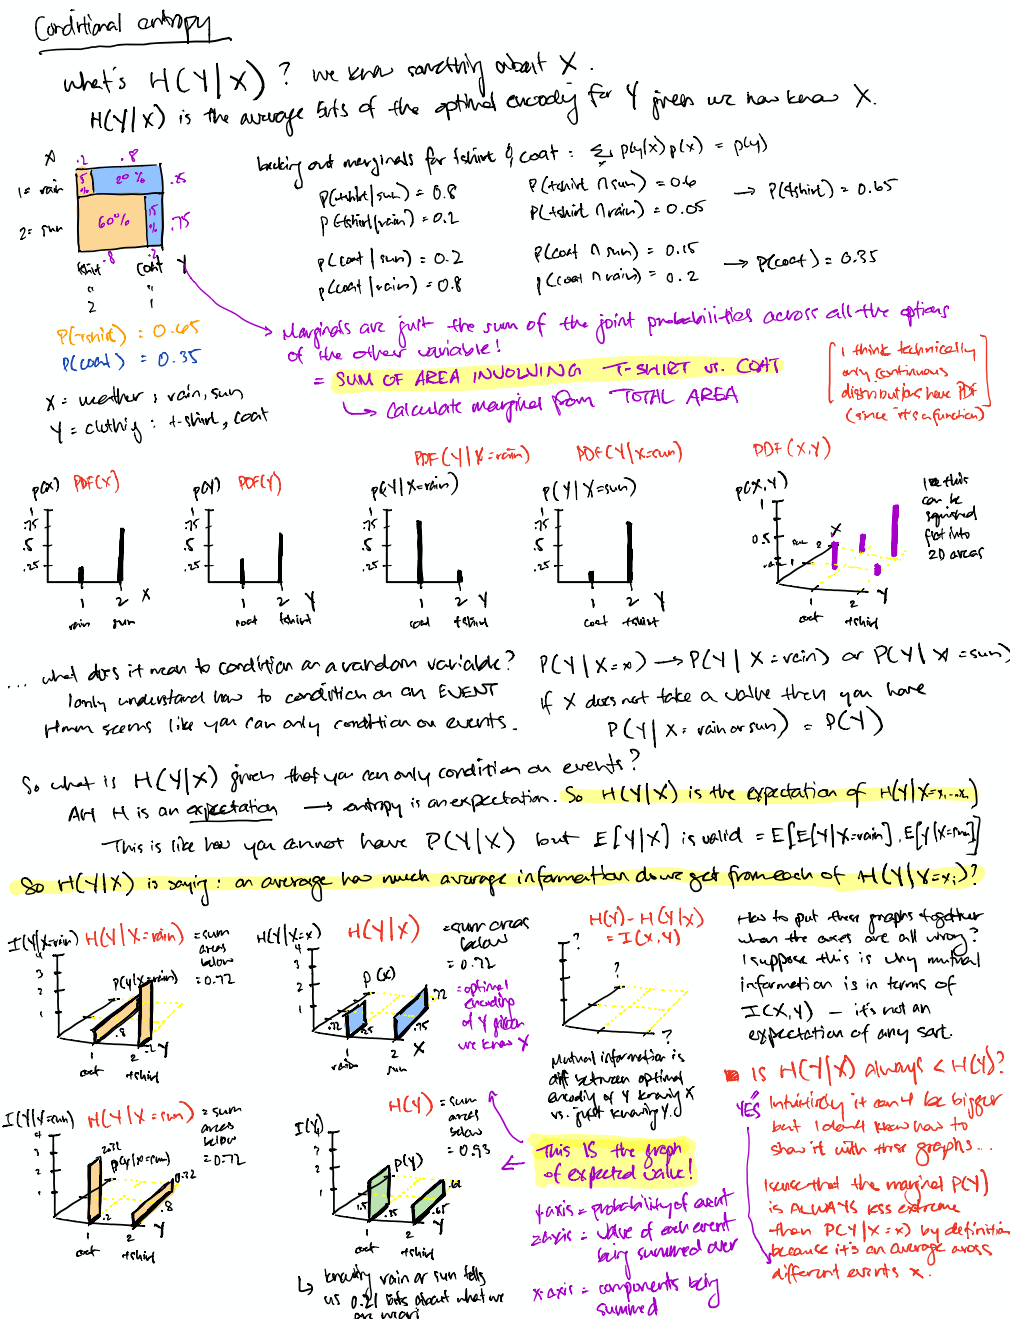 Conditional entropy
what's H(Y|X)? we know something about X.
H(Y|X) is the average bits of the optimal encoding for Y given we now know X.
X .2 .8
1 = rain 5% 20% .25
2 = sun 60% 15% .75
.8 .2
tshirt coat Y
" "
2 1
P(tshirt) = 0.65
P(coat) = 0.35
X = weather : rain, sun
Y = clothing : t-shirt, coat
backing out marginals for tshirt & coat : Σ p(y|x) p(x) = p(y)
P(tshirt|sun) = 0.8 P(tshirt ∩ sun) = 0.6 → P(tshirt) = 0.65
P(tshirt|rain) = 0.2 P(tshirt ∩ rain) = 0.05
P(coat|sun) = 0.2 P(coat ∩ sun) = 0.15
P(coat|rain) = 0.8 P(coat ∩ rain) = 0.2 → P(coat) = 0.35
Marginals are just the sum of the joint probabilities across all the options
of the other variable!
= SUM OF AREA INVOLVING T-SHIRT vs. COAT
↳ Calculate marginal from TOTAL AREA
I think technically
only continuous
distributions have PDF
(since it's a function)
p(X) PDF(X)
1
.75
.5
.25
1 2 X
rain sun
p(Y) PDF(Y)
1
.75
.5
.25
1 2 Y
coat tshirt
PDF(Y|X=rain)
p(Y|X=rain)
1
.75
.5
.25
1 2 Y
coat tshirt
PDF(Y|X=sun)
p(Y|X=sun)
1
.75
.5
.25
1 2 Y
coat tshirt
PDF(X,Y)
p(X,Y)
1
0.5
X
sun 2
rain 1
1 2 Y
coat tshirt
this
can be
squished
flat into
2D areas
... what does it mean to condition on a random variable? P(Y|X=x) → P(Y|X=rain) or P(Y|X=sun)
I only understand how to condition on an EVENT
Hmm seems like you can only condition on events.
if X does not take a value then you have
P(Y|X=rain or sun) = P(Y)
So what is H(Y|X) given that you can only condition on events?
AH H is an expectation → entropy is an expectation. So H(Y|X) is the expectation of H(Y|X=x,...xn)
This is like how you cannot have P(Y|X) but E[Y|X] is valid = E[E[Y|X=rain], E[Y|X=sun]]
So H(Y|X) is saying: on average how much average information do we get from each of H(Y|X=xi)?
I(Y|X=rain) H(Y|X=rain) = sum
areas
below
= 0.72
4
3
2
1
p(Y|X=rain)
.8
.2
1 2 Y
coat tshirt
H(Y|X=x) H(Y|X) = sum areas
below
= 0.72
= optimal
encoding
of Y given
we know X
4
3
2
1
p(X)
.72
.72
.25
.75
1 2 X
rain sun
H(Y) - H(Y|X)
= I(X,Y)
?
?
?
Mutual information is
diff between optimal
encoding of Y knowing X
vs. just knowing Y.
How to put these graphs together
when the axes are all wrong?
I suppose this is why mutual
information is in terms of
I(X,Y) — it's not an
expectation of any sort.
Is H(Y|X) always < H(Y)?
YES
Intuitively it can't be bigger
but I don't know how to
show it with these graphs...
I sense that the marginal P(Y)
is ALWAYS less extreme
than P(Y|X=x) by definition
because it's an average across
different events x.
I(Y|X=sun) H(Y|X=sun) = sum
areas
below
= 0.72
4
3
2
1
2.32
p(Y|X=sun)
0.32
.2
.8
1 2 Y
coat tshirt
I(Y) H(Y) = sum
areas
below
= 0.93
p(Y)
1.5
.35
.62
.65
1 2 Y
coat tshirt
↳ knowing rain or sun tells
us 0.21 bits about what we
are wearing
This IS the graph
of expected value!
y-axis = probability of event
z-axis = value of each event
being summed over
x-axis = components being
summed